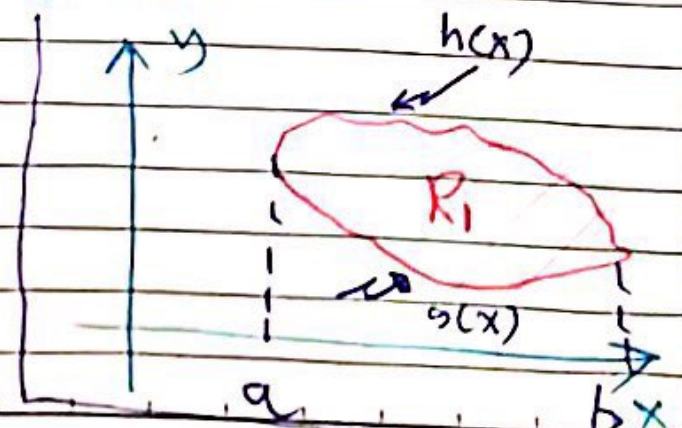 h(x)
y
R1
g(x)
a b x